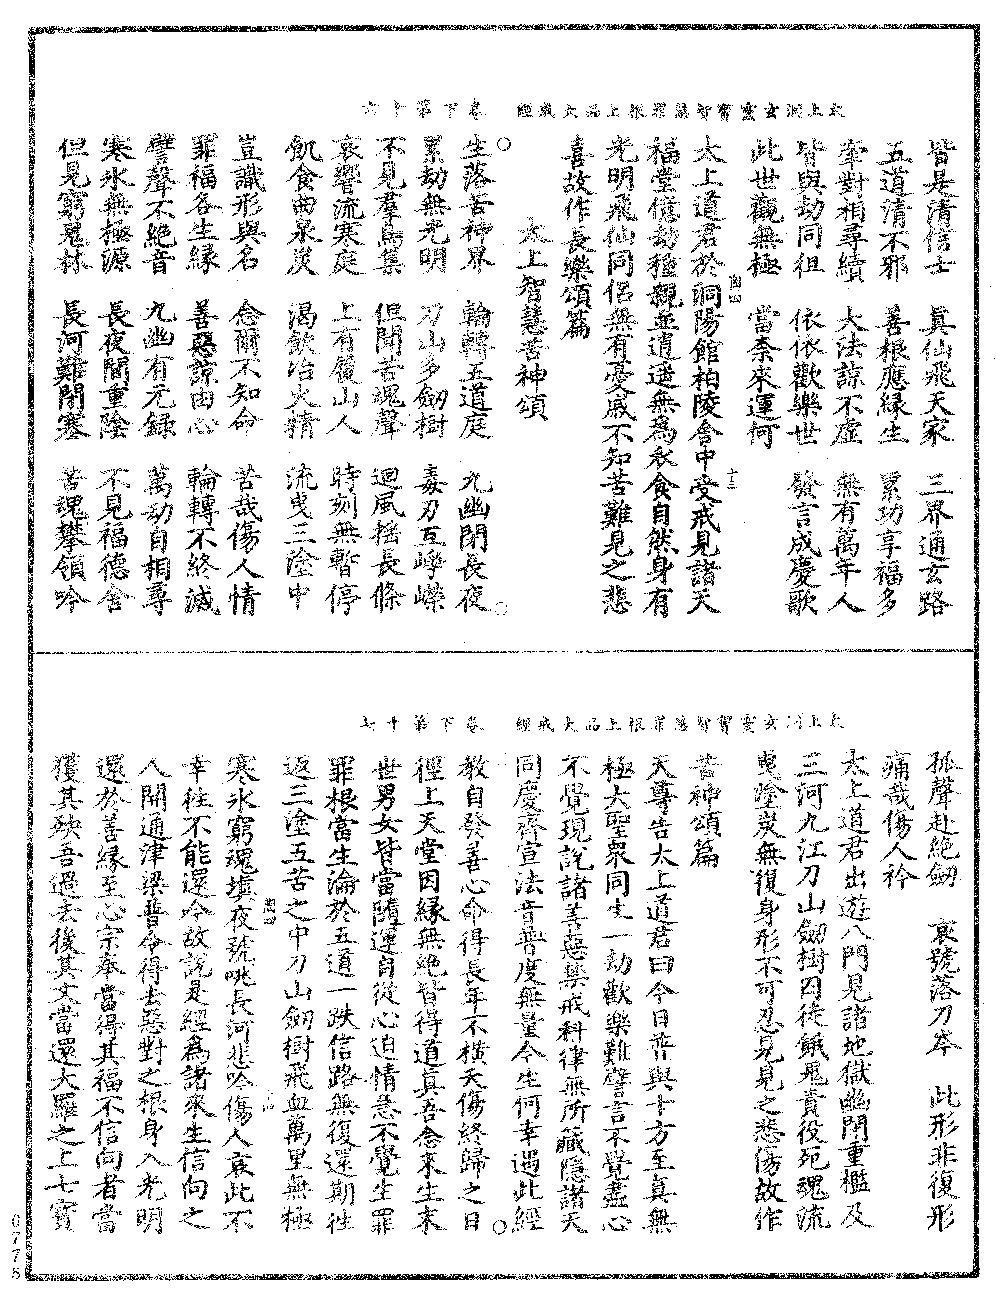 太上洞玄靈寶智慧罪根上品大戒經　卷下第十六
皆是清信士　真仙飛天家　三界通玄路
五道清不邪　善根應緣生　累功享福多
牽對相尋續　大法諒不虛　無有萬年人
皆與劫同徂　依依歡樂世　發言成慶歌
此世觀無極　當奈來運何
太上道君於洞陽館柏陵舍中受戒見諸天
福堂億劫種親並逍遙無為衣食自然身有
光明飛仙同侶無有憂慼不知苦難見之悲
喜故作長樂頌篇
太上智慧苦神頌
生落苦神界　輪轉五道庭　九幽閉長夜
累劫無光明　刀山多劒樹　毒刃互崢嶸
不見羣鳥集　但聞苦魂聲　迴風搖長條
哀響流寒庭　上有履山人　時刻無暫停
飢食曲泉炭　渴飲冶火精　流曳三塗中
豈識形與名　念爾不知命　苦哉傷人情
罪福各生緣　善惡諒由心　輪轉不終滅
譬聲不絕音　九幽有元錄　萬劫自相尋
寒氷無極源　長夜閒重陰　不見福德舍
但見窮鬼林　長河難閉塞　苦魂攀嶺吟
太上洞玄靈寶智慧罪根上品大戒經　卷下第十七
孤聲赴絕劒　哀號落刀岑　此形非復形
痛哉傷人衿
太上道君出遊八門見諸地獄幽閉重檻及
三河九江刀山劒樹囚徒餓鬼責役死魂流
曳塗炭無復身形不可忍見見之悲傷故作
苦神頌篇
天尊告太上道君曰今日普與十方至真無
極大聖衆同生一劫歡樂難譬言不覺盡心
不覺現說諸善惡禁戒科律無所藏隱諸天
同慶齊宣法音普度無量今生何幸遇此經
教自發善心命得長年不橫夭傷終歸之日
徑上天堂因緣無絕皆得道真吾念來生末
世男女皆當隨運自從心迫情急不覺生罪
罪根當生淪於五道一跌信路無復還期往
返三塗五苦之中刀山劒樹飛血萬里無極
寒氷窮魂塡夜號咷長河悲吟傷人哀此不
幸往不能還今故說是經為諸來生信向之
人開通津梁普令得去惡對之根身入光明
還於善緣至心宗奉當得其福不信向者當
獲其殃吾過去後其文當還大羅之上七寶
0778